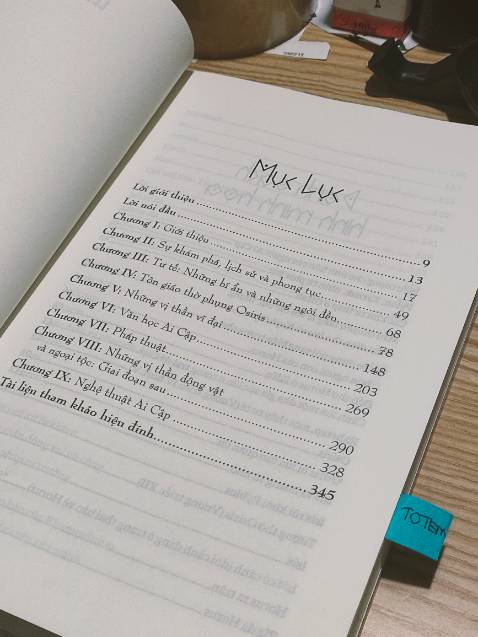 Mục Lục
Lời giới thiệu ........ 9
Lời nói đầu ........ 13
Chương I: Giới thiệu ........ 17
Chương II: Sự khám phá, lịch sử và phong tục ........ 49
Chương III: Tư tế: Những bí ẩn và những ngôi đền ........ 68
Chương IV: Tôn giáo thờ phụng Osiris ........ 78
Chương V: Những vị thần vĩ đại ........ 148
Chương VI: Văn học Ai Cập ........ 203
Chương VII: Pháp thuật ........ 269
Chương VIII: Những vị thần động vật
và ngoại tộc: Giai đoạn sau ........ 290
Chương IX: Nghệ thuật Ai Cập ........ 328
Tài liệu tham khảo hiệu đính ........ 345
TOTEM